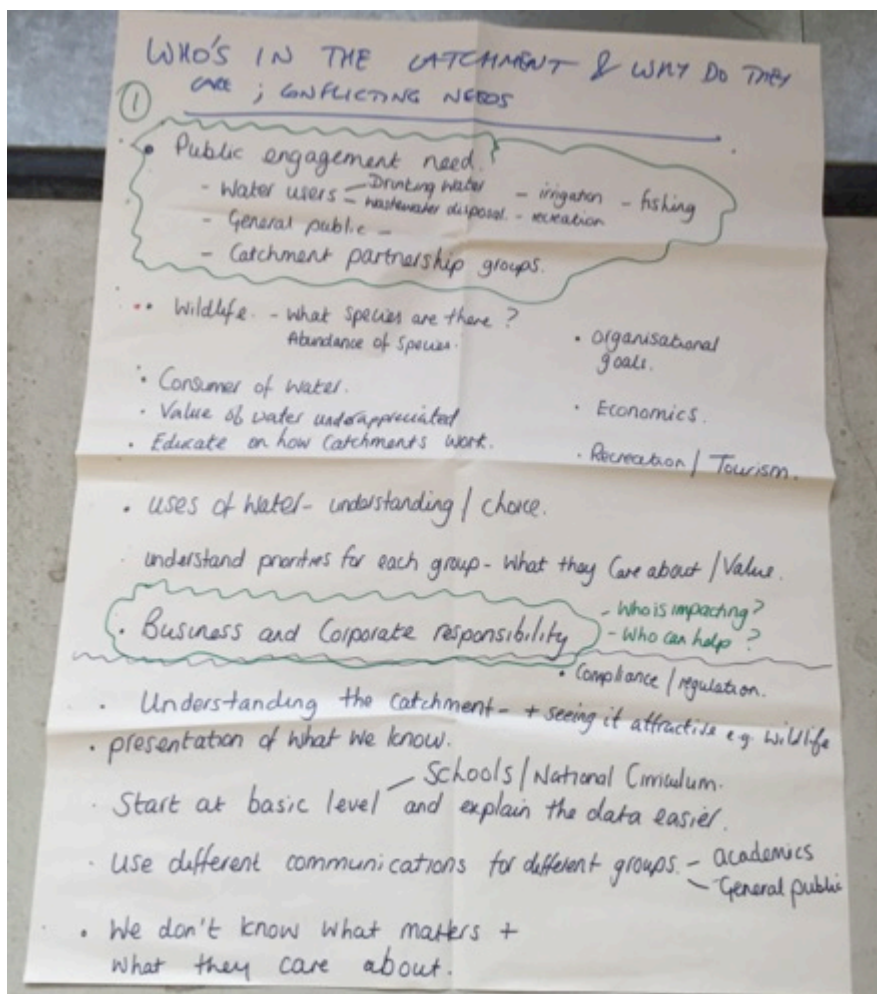 WHO'S IN THE CATCHMENT & WHY DO THEY
CARE ; CONFLICTING NEEDS
①
• Public engagement need.
- Water users - Drinking water - irrigation - fishing
- wastewater disposal. - recreation
- General public -
- Catchment partnership groups.
•• Wildlife. - What species are there ?
Abundance of Species.
• Organisational
goals.
• Consumer of Water.
• Economics.
• Value of water underappreciated
• Educate on how Catchments work.
• Recreation / Tourism.
• Uses of Water - understanding / choice.
understand priorities for each group - What they Care about / Value.
• Business and Corporate responsibility
- Who is impacting?
- Who can help ?
• Compliance / regulation.
• Understanding the catchment - + seeing it attractive e.g. wildlife
• presentation of what we know.
Schools / National Curriculum.
• Start at basic level and explain the data easier.
• Use different communications for different groups. - academics
- General public
• We don't know what matters +
what they care about.